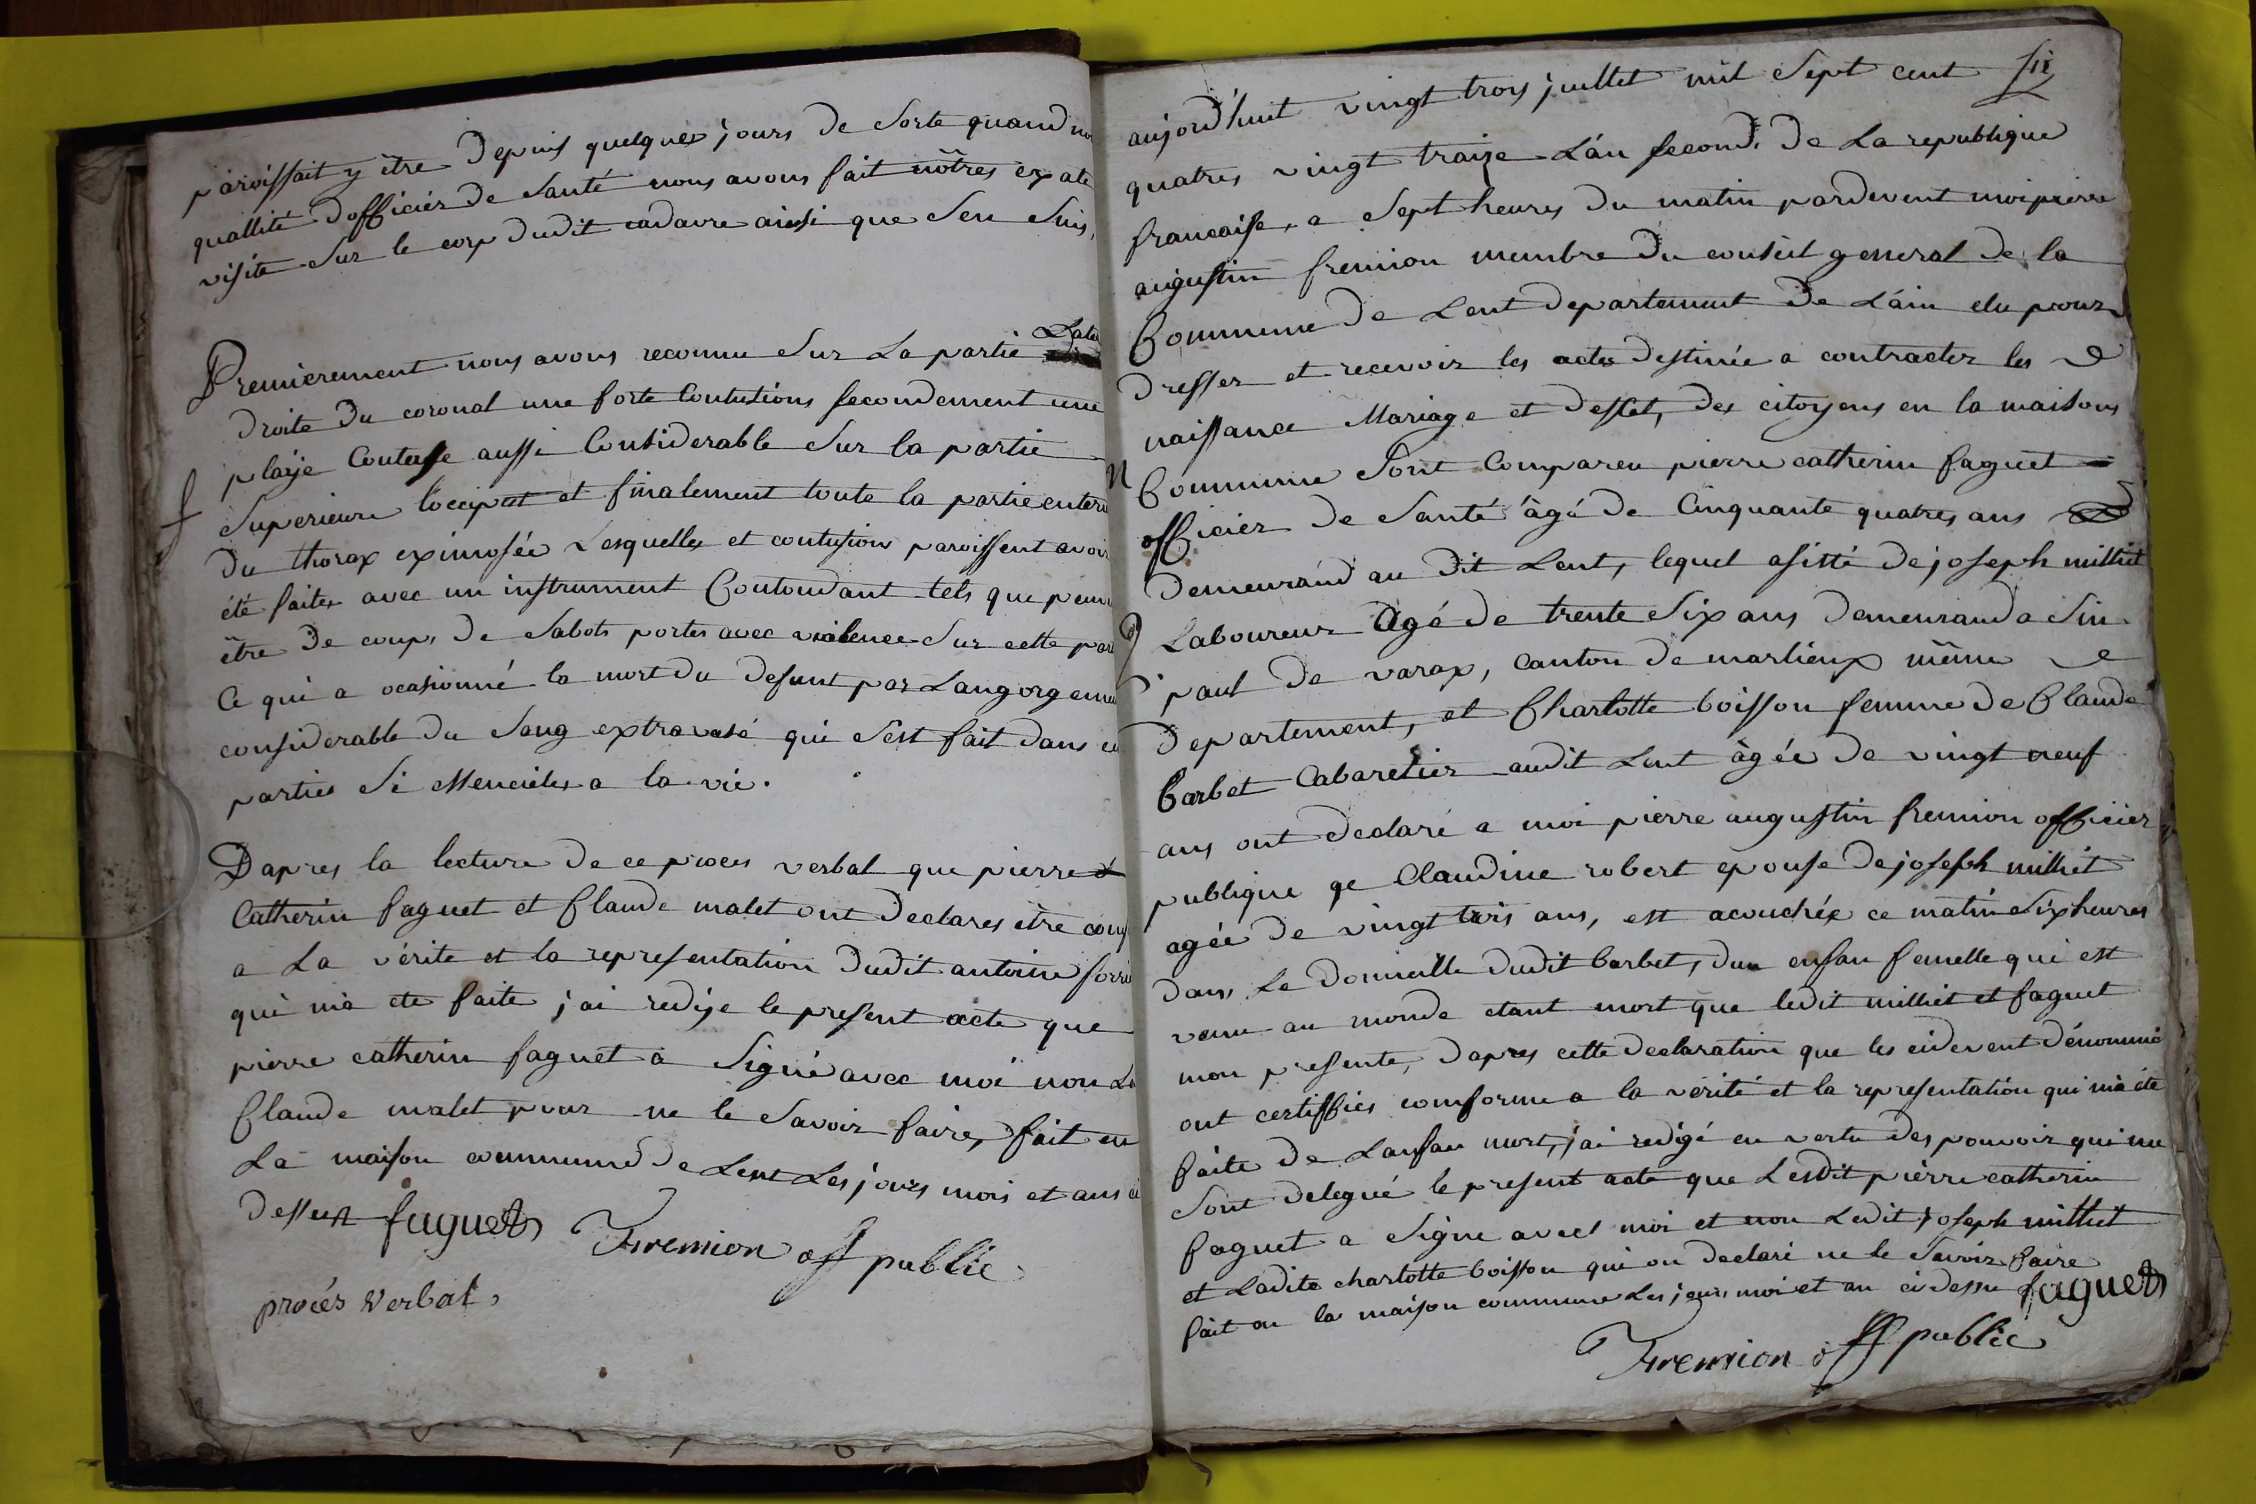 paroissait y être depuis quelques jours de sorte quand no
quallité dofficier de santé nous avons fait nôtres exate
visite sur le corp dudit cadavre ainsi que sen suis,
Late
Premierement nous avons reconnu sur la partie
droite du coronal une forte Contutions secondement une
playe Contuse aussi Considerable sur la partie
superieure locciput et finalement toute la partie enteri
du thorax eximosée Lesquelles et contusions paroissent avoir
été faites avec un instrument Contondant tels que peuv
être de coups de sabots portes avec violence sur cette par
Ce qui a ocasionné la mort du defunt par Langorgemen
considerable du sang extravasé qui sest fait dans ce
parties si essencieles a la vie.
Dapres la lecture de ce proces verbal que pierre
Catherin faguet et Claude malet ont declares être conf
a La vérite et la representation dudit antoine
qui ma ete faite j'ai redige le present acte que
pierre catherin faguet a signé avec moi non Le
Claude malet pour ne le savoir faire, fait en
La maison commune de Lent Les jours mois et ans ci
dessus faguet Fremion off public
procés verbal,
aujord'huit vingt trois juillet mil sept cent
quatres vingt traize L'an second. de La republique
francaise, a sept heures du matin pardevent moi pierre
augustin fremion membre du conseil general de la
Commune de Lent departement de L'ain elu pour
dresser et recevoir les actes destinée a contracter les
naissance Mariage et desset, des citoyens en la maisons
Commune sont Compareu pierre catherin faguet
officier de santé âgé de Cinquante quatres ans
demeurand au dit Lent, lequel asisté de joseph milliet
Laboureur Agé de trente six ans demeurand a sin
paul de varax, canton de marlieux même
departement, et Charlotte boisson femme de Claude
barbet Cabaretier audit Lent âgée de vingt neuf
ans ont declaré a moi pierre augustin fremion officier
publique qe Claudine robert epouse de joseph milliet
agée de vingt trois ans, est acouchée ce matin six heures
dans Le domicille dudit barbet, dun enfan femelle qui est
venu au monde etant mort que ledit milliet et faguet
mon presente, dapres cette declaration que les cidevent dénommé
ont certiffiés comforme a la vérité et la representation qui ma été
faite de Lanfan mort, j'ai redigé en vertu des pouvoir qui me
sont delegué le present acte que Lesdit pierre catherin
faguet a signe avec moi et non Ledit joseph milliet
et Ladite charlotte boisson qui on declaré ne le savoir faire
fait en la maison commune Les jours moi et an ci dessu faguet
Fremion off public